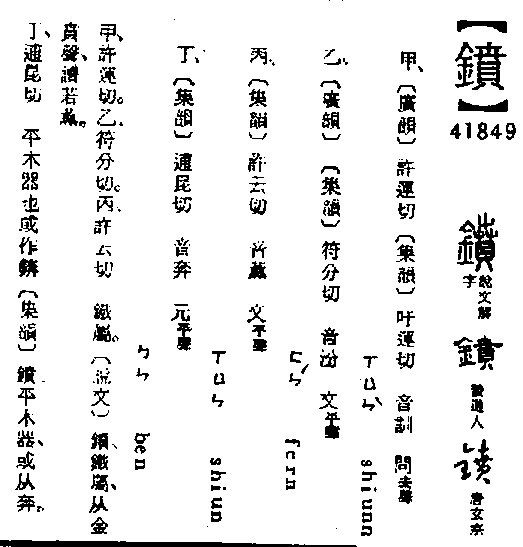 【鐼】
41849
鐼 說文解字
鐼 曾道人
鐼 唐玄奈
甲、〔廣韻〕許運切〔集韻〕吁運切 音訓 問去聲
ㄒㄩㄣˋ shiunn
乙、〔廣韻〕〔集韻〕符分切 音汾 文平聲
ㄈㄣˊ fern
丙、〔集韻〕許云切 音薰 文平聲
ㄒㄩㄣ shiun
丁、〔集韻〕逋昆切 音奔 元平聲
ㄅㄣ ben
甲、許運切。乙、符分切。丙、許云切 鐵屬。〔說文〕鐼、鐵屬、从金
賁聲、讀若薰。
丁、逋昆切 平木器也或作錛〔集韻〕鐼平木器、或从奔。